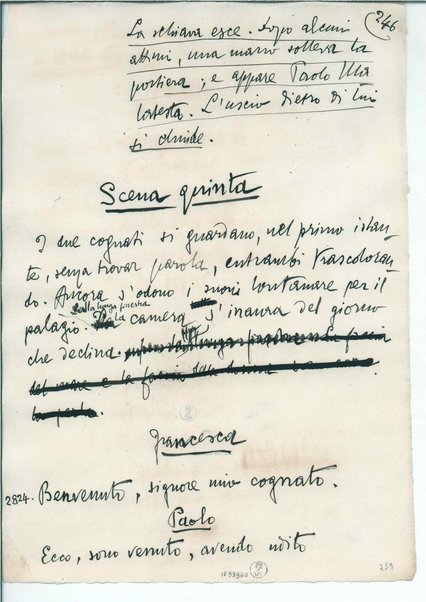 246
La schiava esce. Dopo alcuni
attimi, una mano solleva la
portiera; e appare Paolo Mala
testa. L'uscio dietro di lui
si chiude.
Scena quinta
I due cognati si guardano, nel primo istan-
te, senza trovar parola, entrambi trascoloran-
do. Ancora s'odono i suoni lontanare per il
dalla lunga finestra
palagio. La camera s'inaura del giorno
che declina.
Francesca
2824. Benvenuto, signore mio cognato.
Paolo
Ecco, sono venuto, avendo udito
259